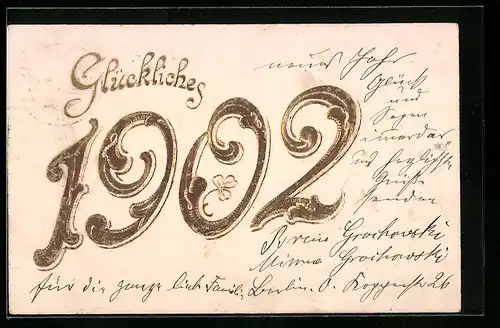 Glückliches
1902
neues Jahr
Glück
und
Segen
immerdar
und herzlichste
Grüße
senden
Bruno Grochowski
Minna Grochowski
für die ganze lieb. Famil. Berlin. O. Koppenstr 26